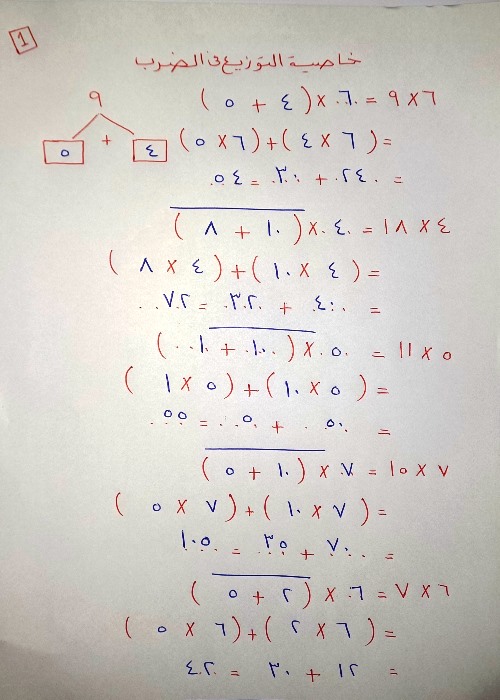 1
خاصية التوزيع في الضرب
٦ × ٩ = ٦ × (٤ + ٥)
٩
= (٦ × ٤) + (٦ × ٥)
٤ + ٥
= ٢٤ + ٣٠ = ٥٤
٤ × ١٨ = ٤ × (١٠ + ٨)
= (٤ × ١٠) + (٤ × ٨)
= ٤٠ + ٣٢ = ٧٢
٥ × ١١ = ٥ × (١٠ + ١)
= (٥ × ١٠) + (٥ × ١)
= ٥٠ + ٥ = ٥٥
٧ × ١٥ = ٧ × (١٠ + ٥)
= (٧ × ١٠) + (٧ × ٥)
= ٧٠ + ٣٥ = ١٠٥
٦ × ٧ = ٦ × (٢ + ٥)
= (٦ × ٢) + (٦ × ٥)
= ١٢ + ٣٠ = ٤٢